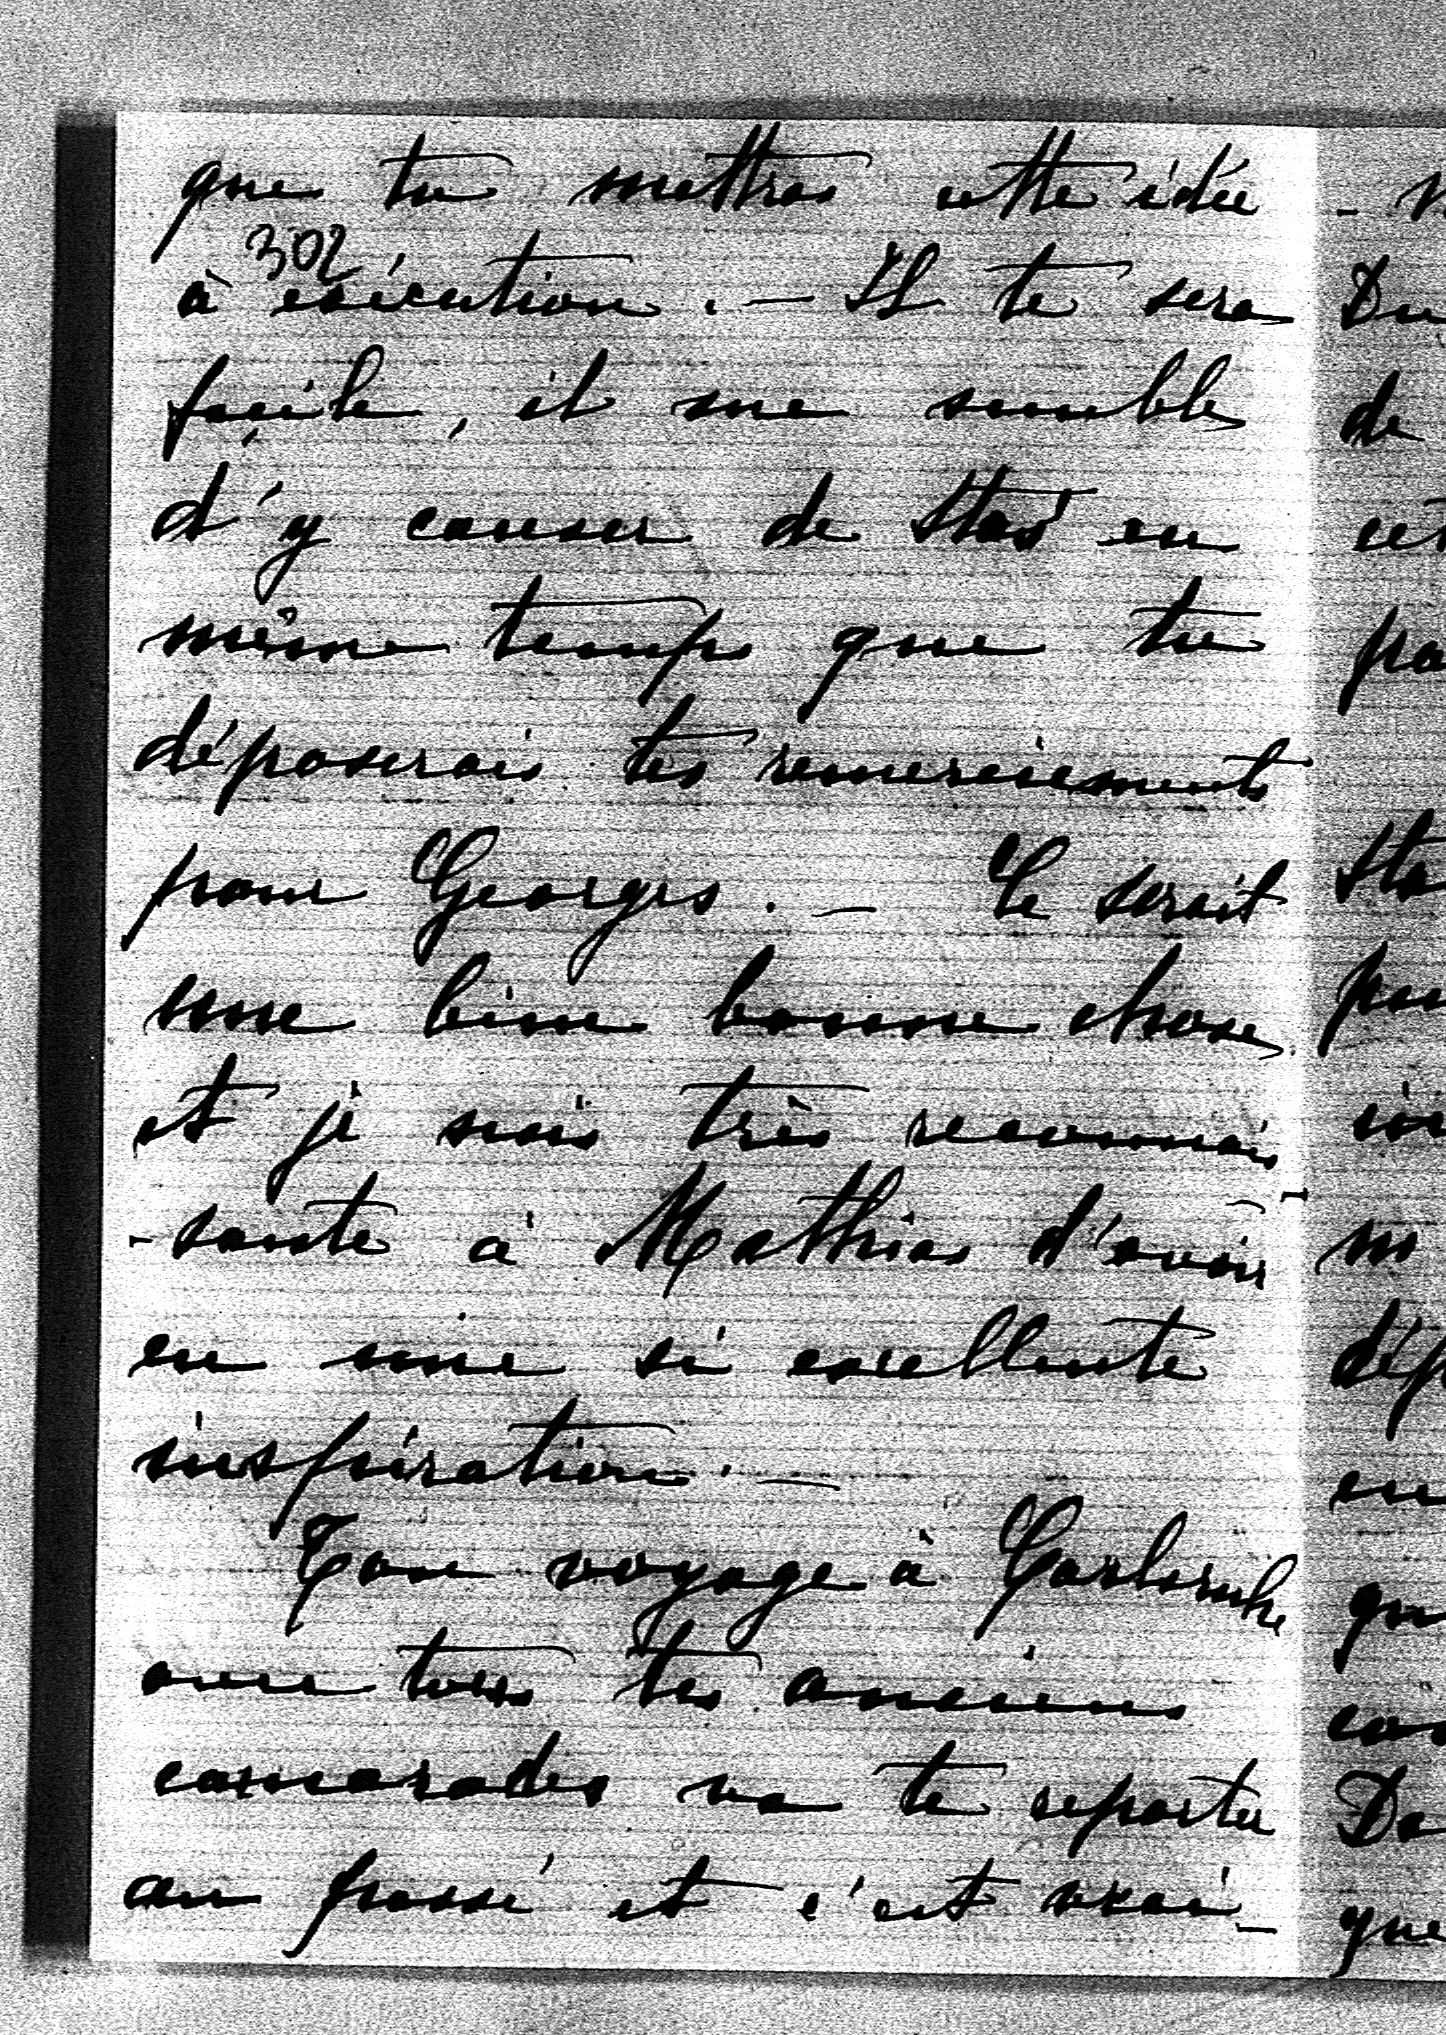 que tu mettras cette idée
302
à exécution. — Il te sera
facile, il me semble
d'y causer de Stas en
même temps que tu
déposerais tes remerciements
pour Georges. — Ce serait
une bien bonne chose
et je suis très reconnais-
-sante à Mathias d'avoir
eu une si excellente
inspiration. —
Ton voyage à Carlsruhe
avec tous tes anciens
camarades va te reporter
au passé et c'est vrai-
Du
de
que